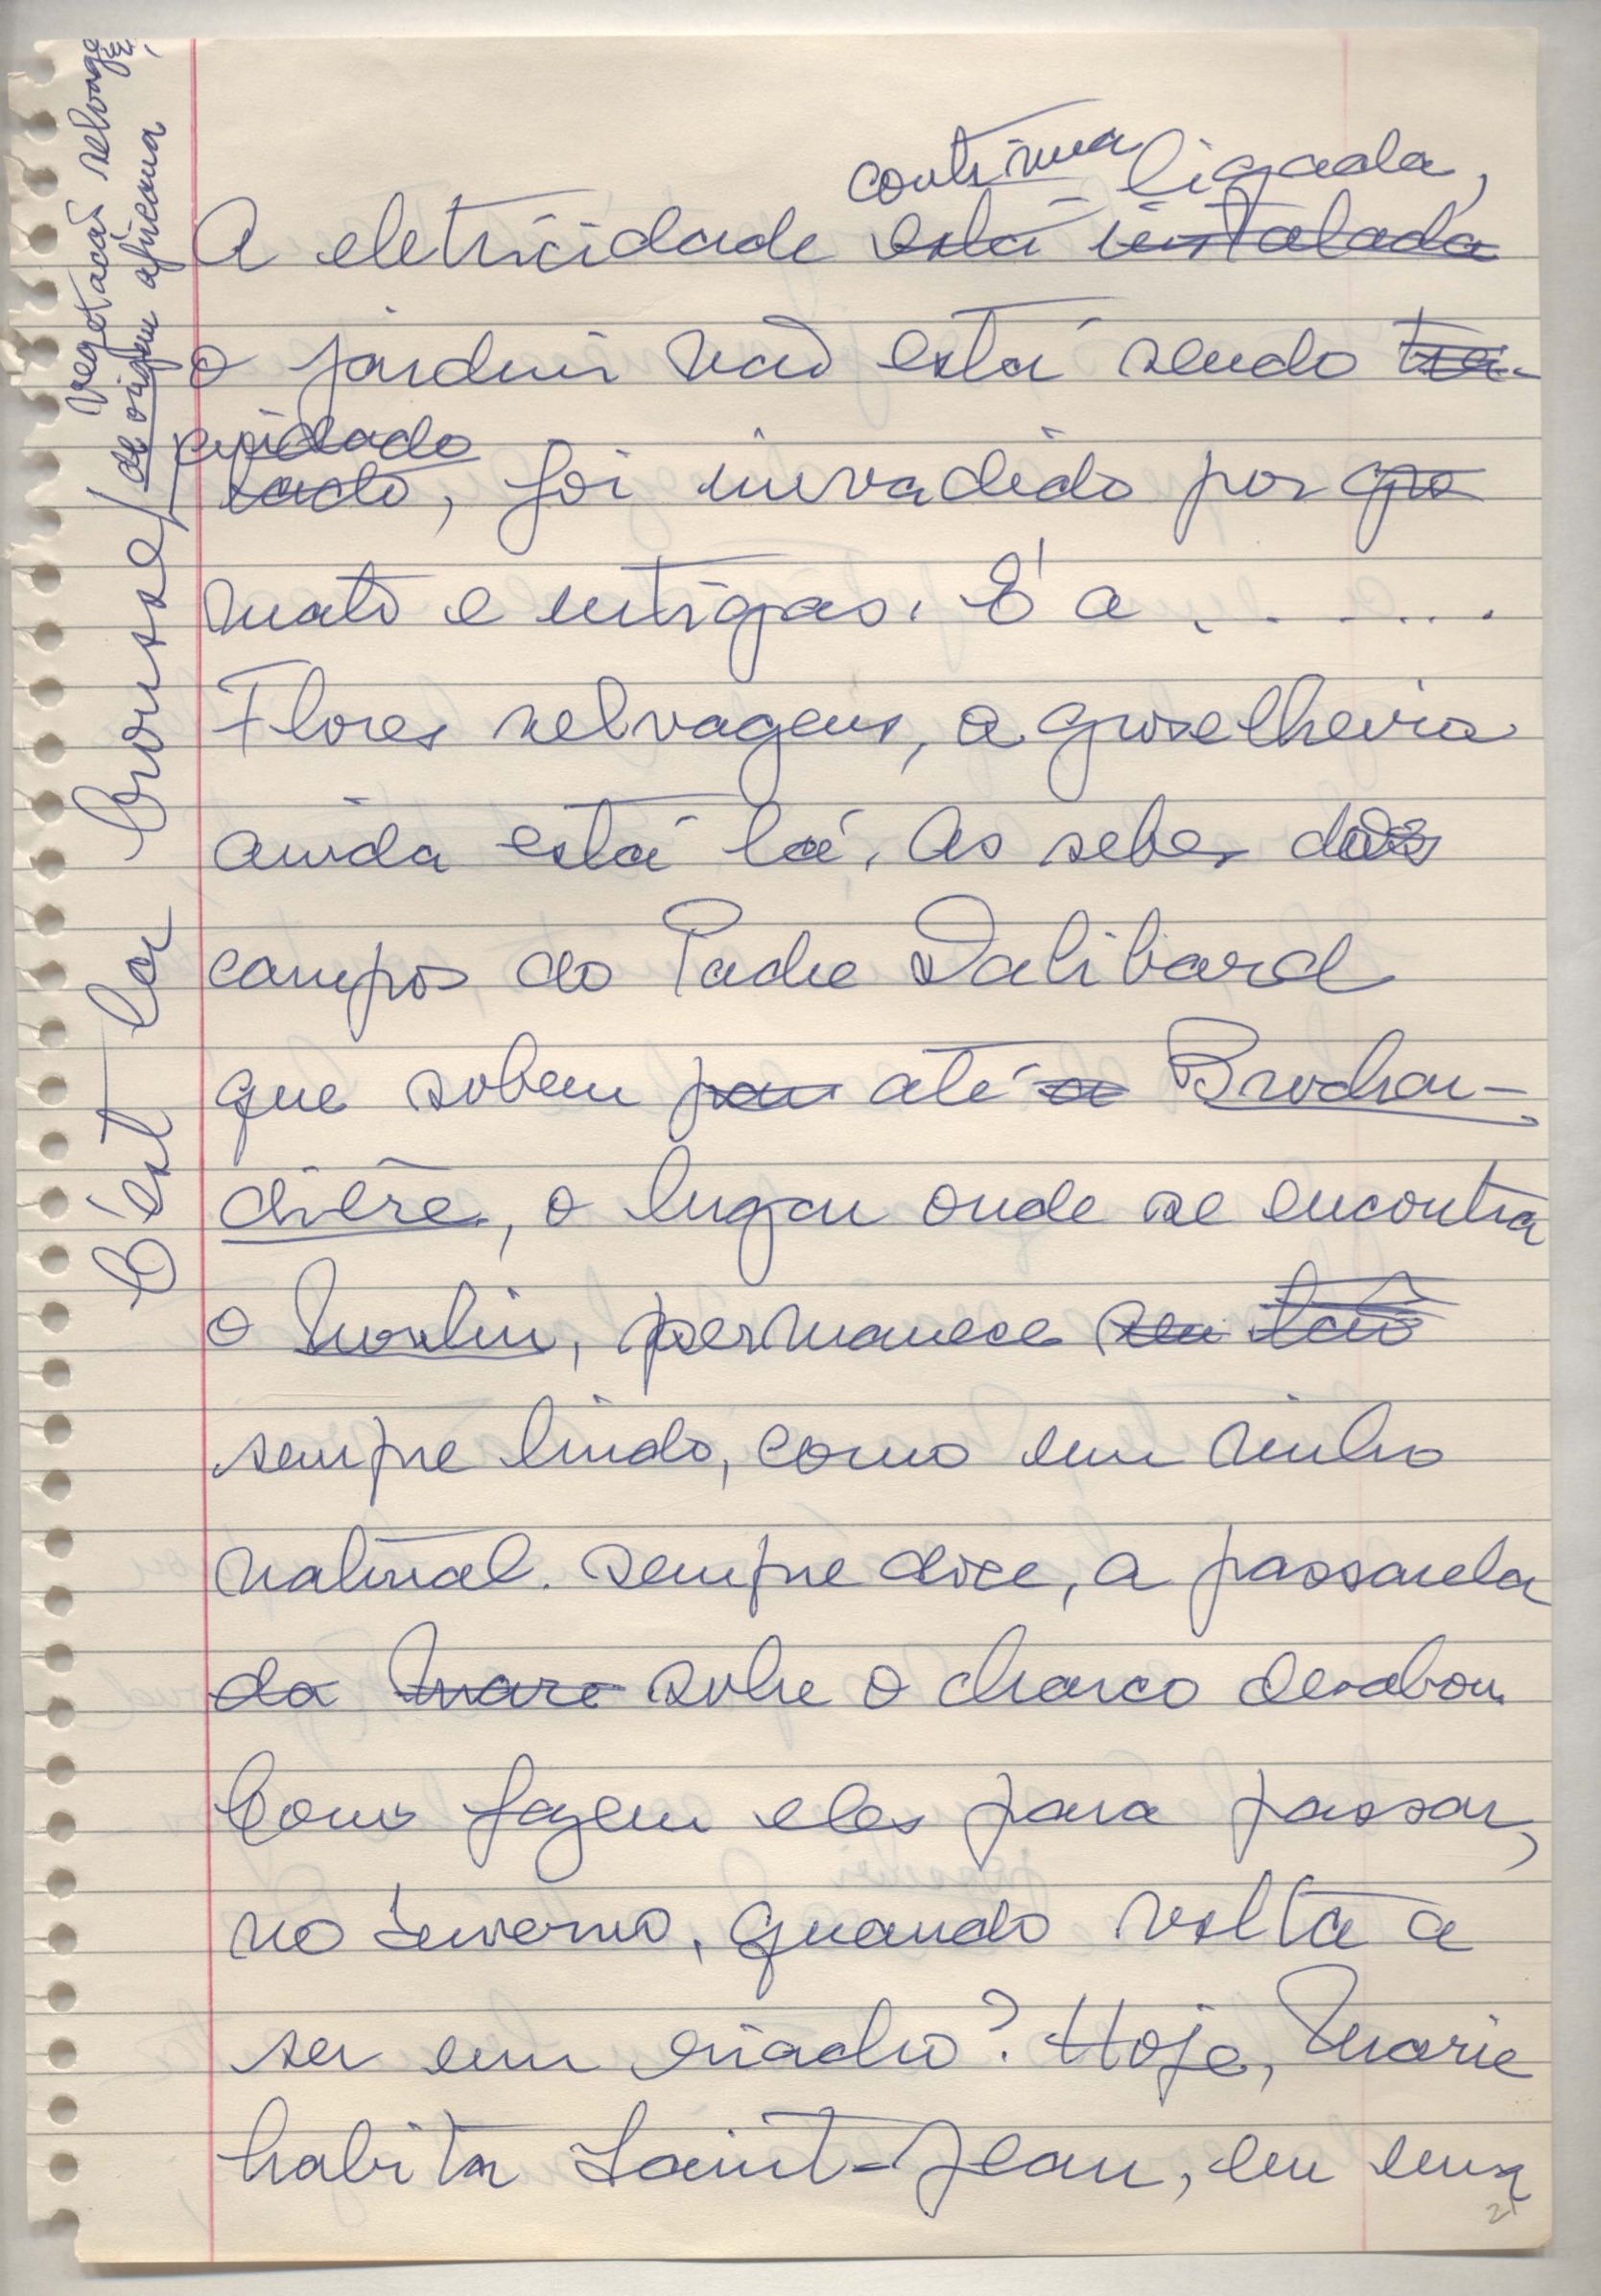 Vegetação selvagem
de origem africana,
C'est la brousse /
continua ligada,
A eletricidade está instalada
o jardim não está sendo tra-
cuidado
tado, foi invadido por
mato e urtigas. É a . . . . . .
Flores selvagens, a groselheira
ainda está lá. As sebes dos
campos do Padre Dalibard
que sobem para até a Brochar-
dière, o lugar onde se encontra
o Moulin, permanece seu tão
sempre lindo, como um ninho
natural. Sempre doce, a passarela
da mare sobre o charco desabou.
Como fazem eles para passar,
no inverno, quando volta a
ser um riacho? Hoje, Marie
habita Saint-Jean, em uma
21